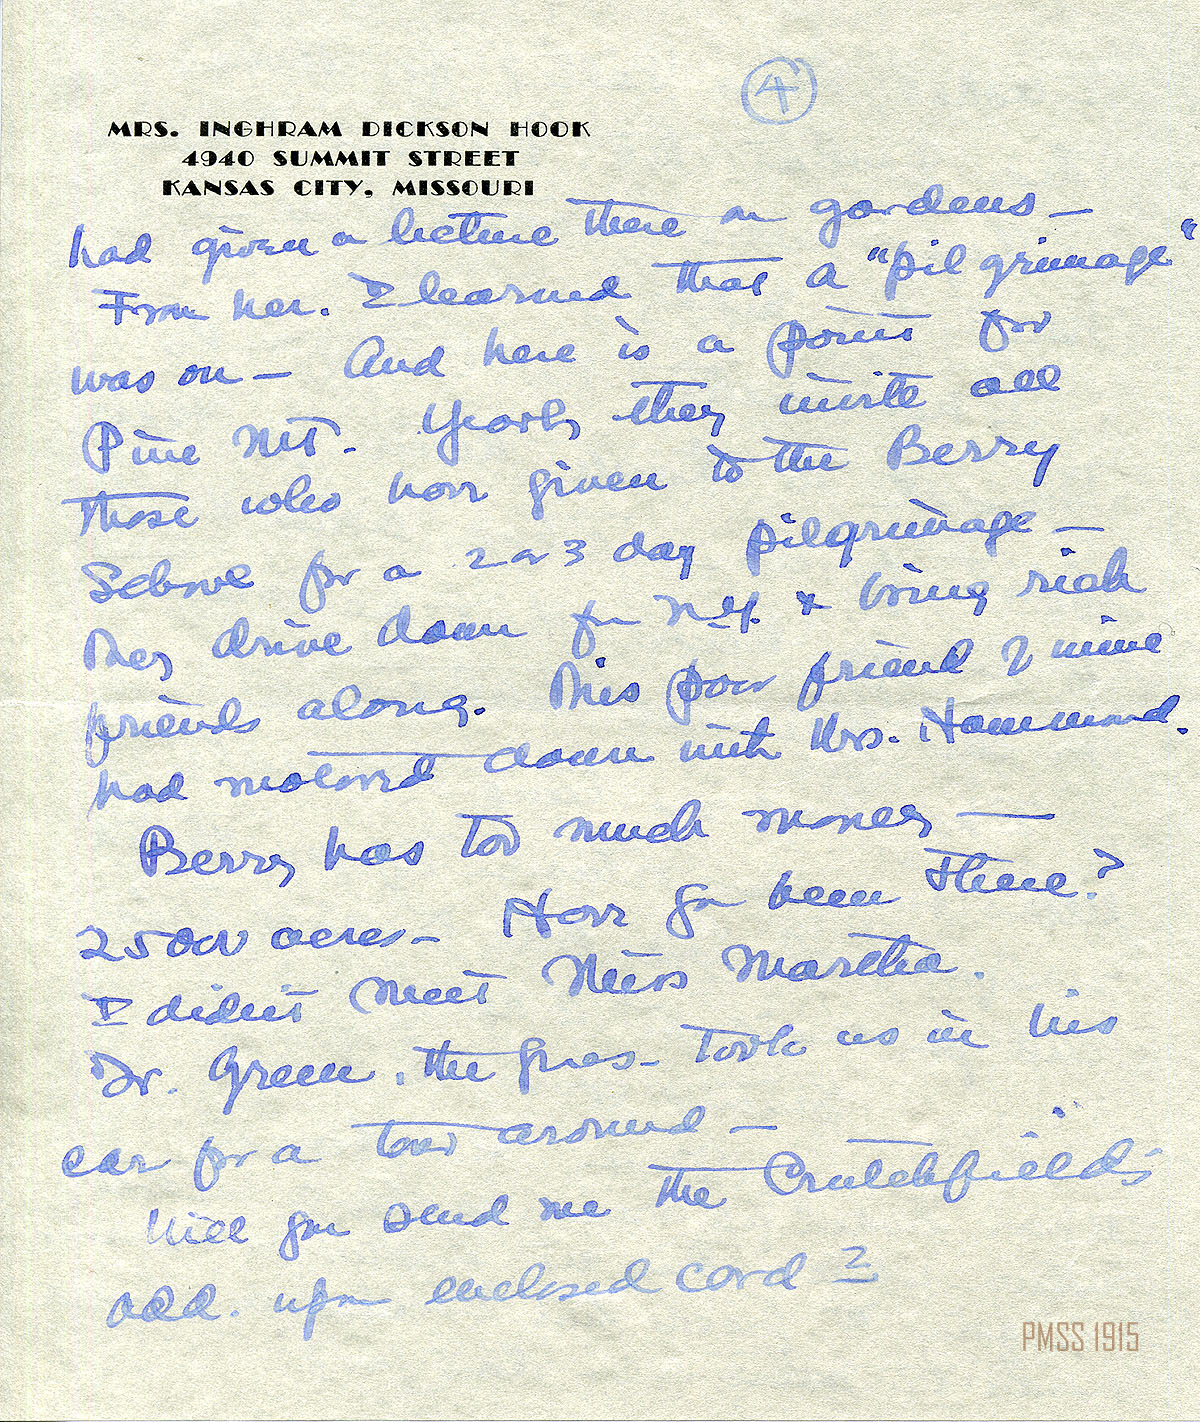 4
MRS. INGHRAM DICKSON HOOK
4940 SUMMIT STREET
KANSAS CITY, MISSOURI
had given a lecture there on gardens —
From her. I learned that a "pilgrimage"
was on — And here is a point for
Pine Mt. Yearly they invite all
those who have given to the Berry
School for a 2 or 3 day pilgrimage —
They drive down fr N.Y. & bring rich
friends along. This poor friend of mine
had motored down with Mrs. Hammond.
Berry has too much money —
25000 acres — Have you been there?
I didn't meet Miss Martha.
Dr. Green, the pres — took us in his
car for a tour around —
Will you send me the Crutchfields
add. upon enclosed card?
PMSS 1915